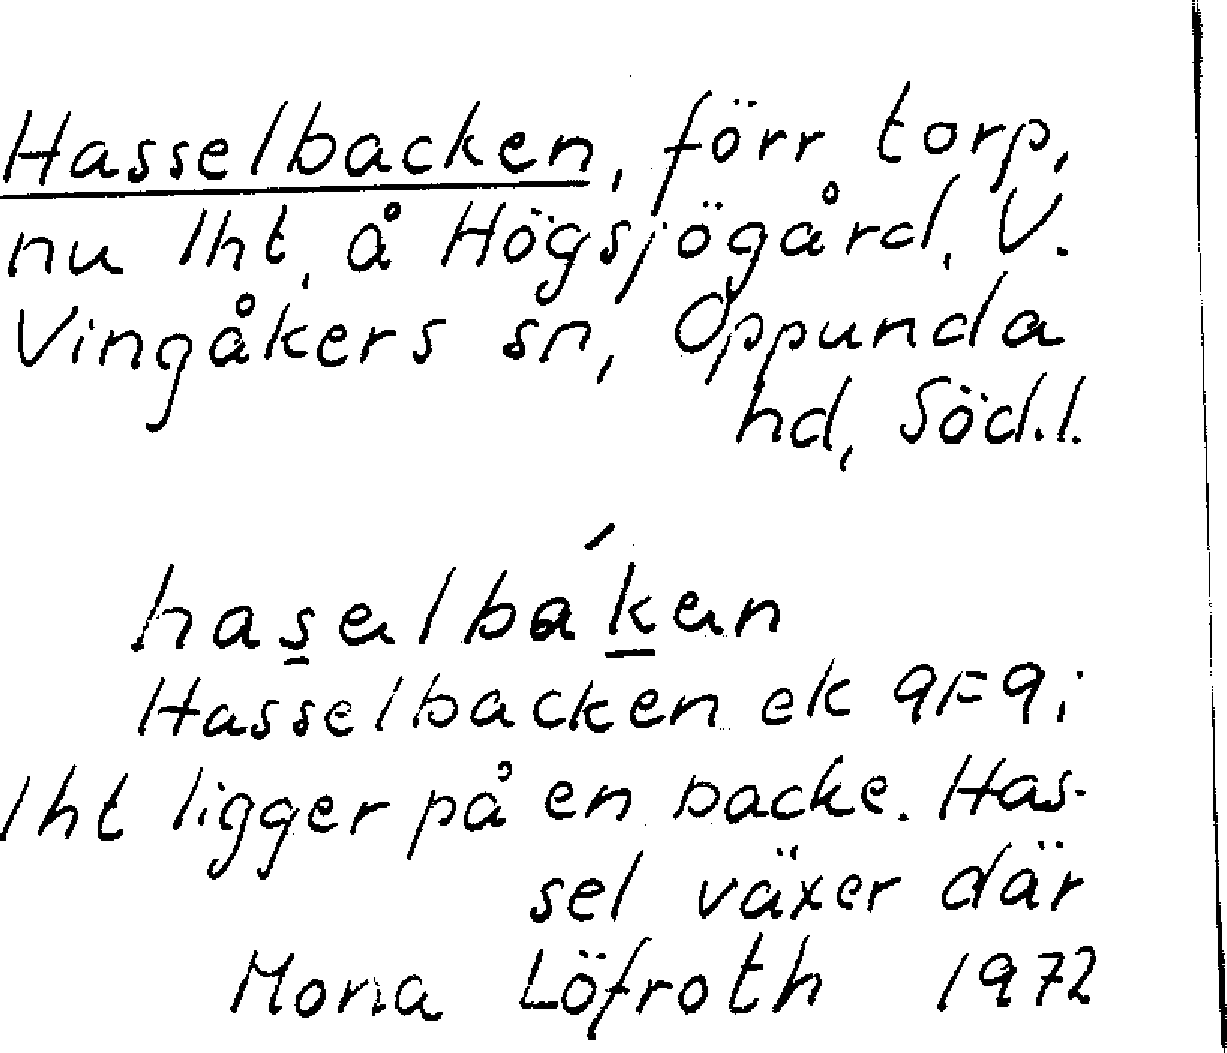 Hasselbacken, förr torp,
nu lht, å Högsjögård, V.
Vingåkers sn, Oppunda
hd, Söd.l.
Hasselbacken ek 9F9i
lht ligger på en backe. Has-
sel växer där
Mona Löfroth 1972